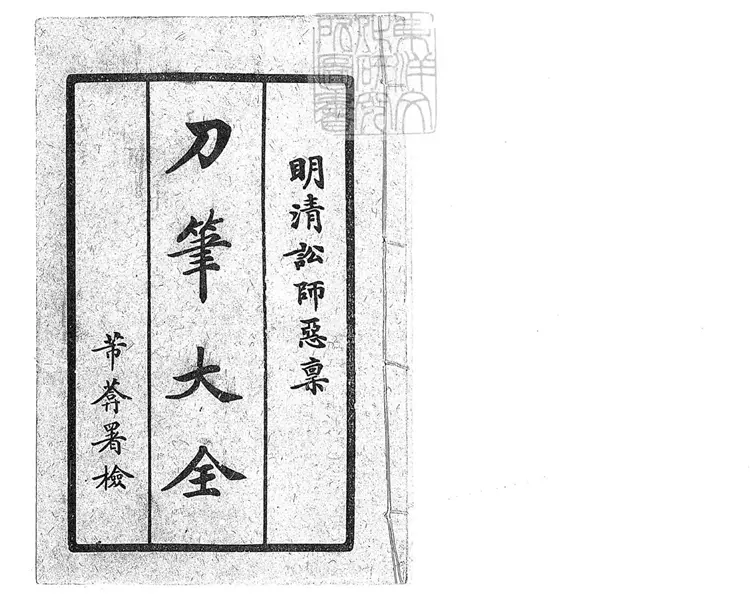 明清訟師惡稟
刀筆大全
署檢